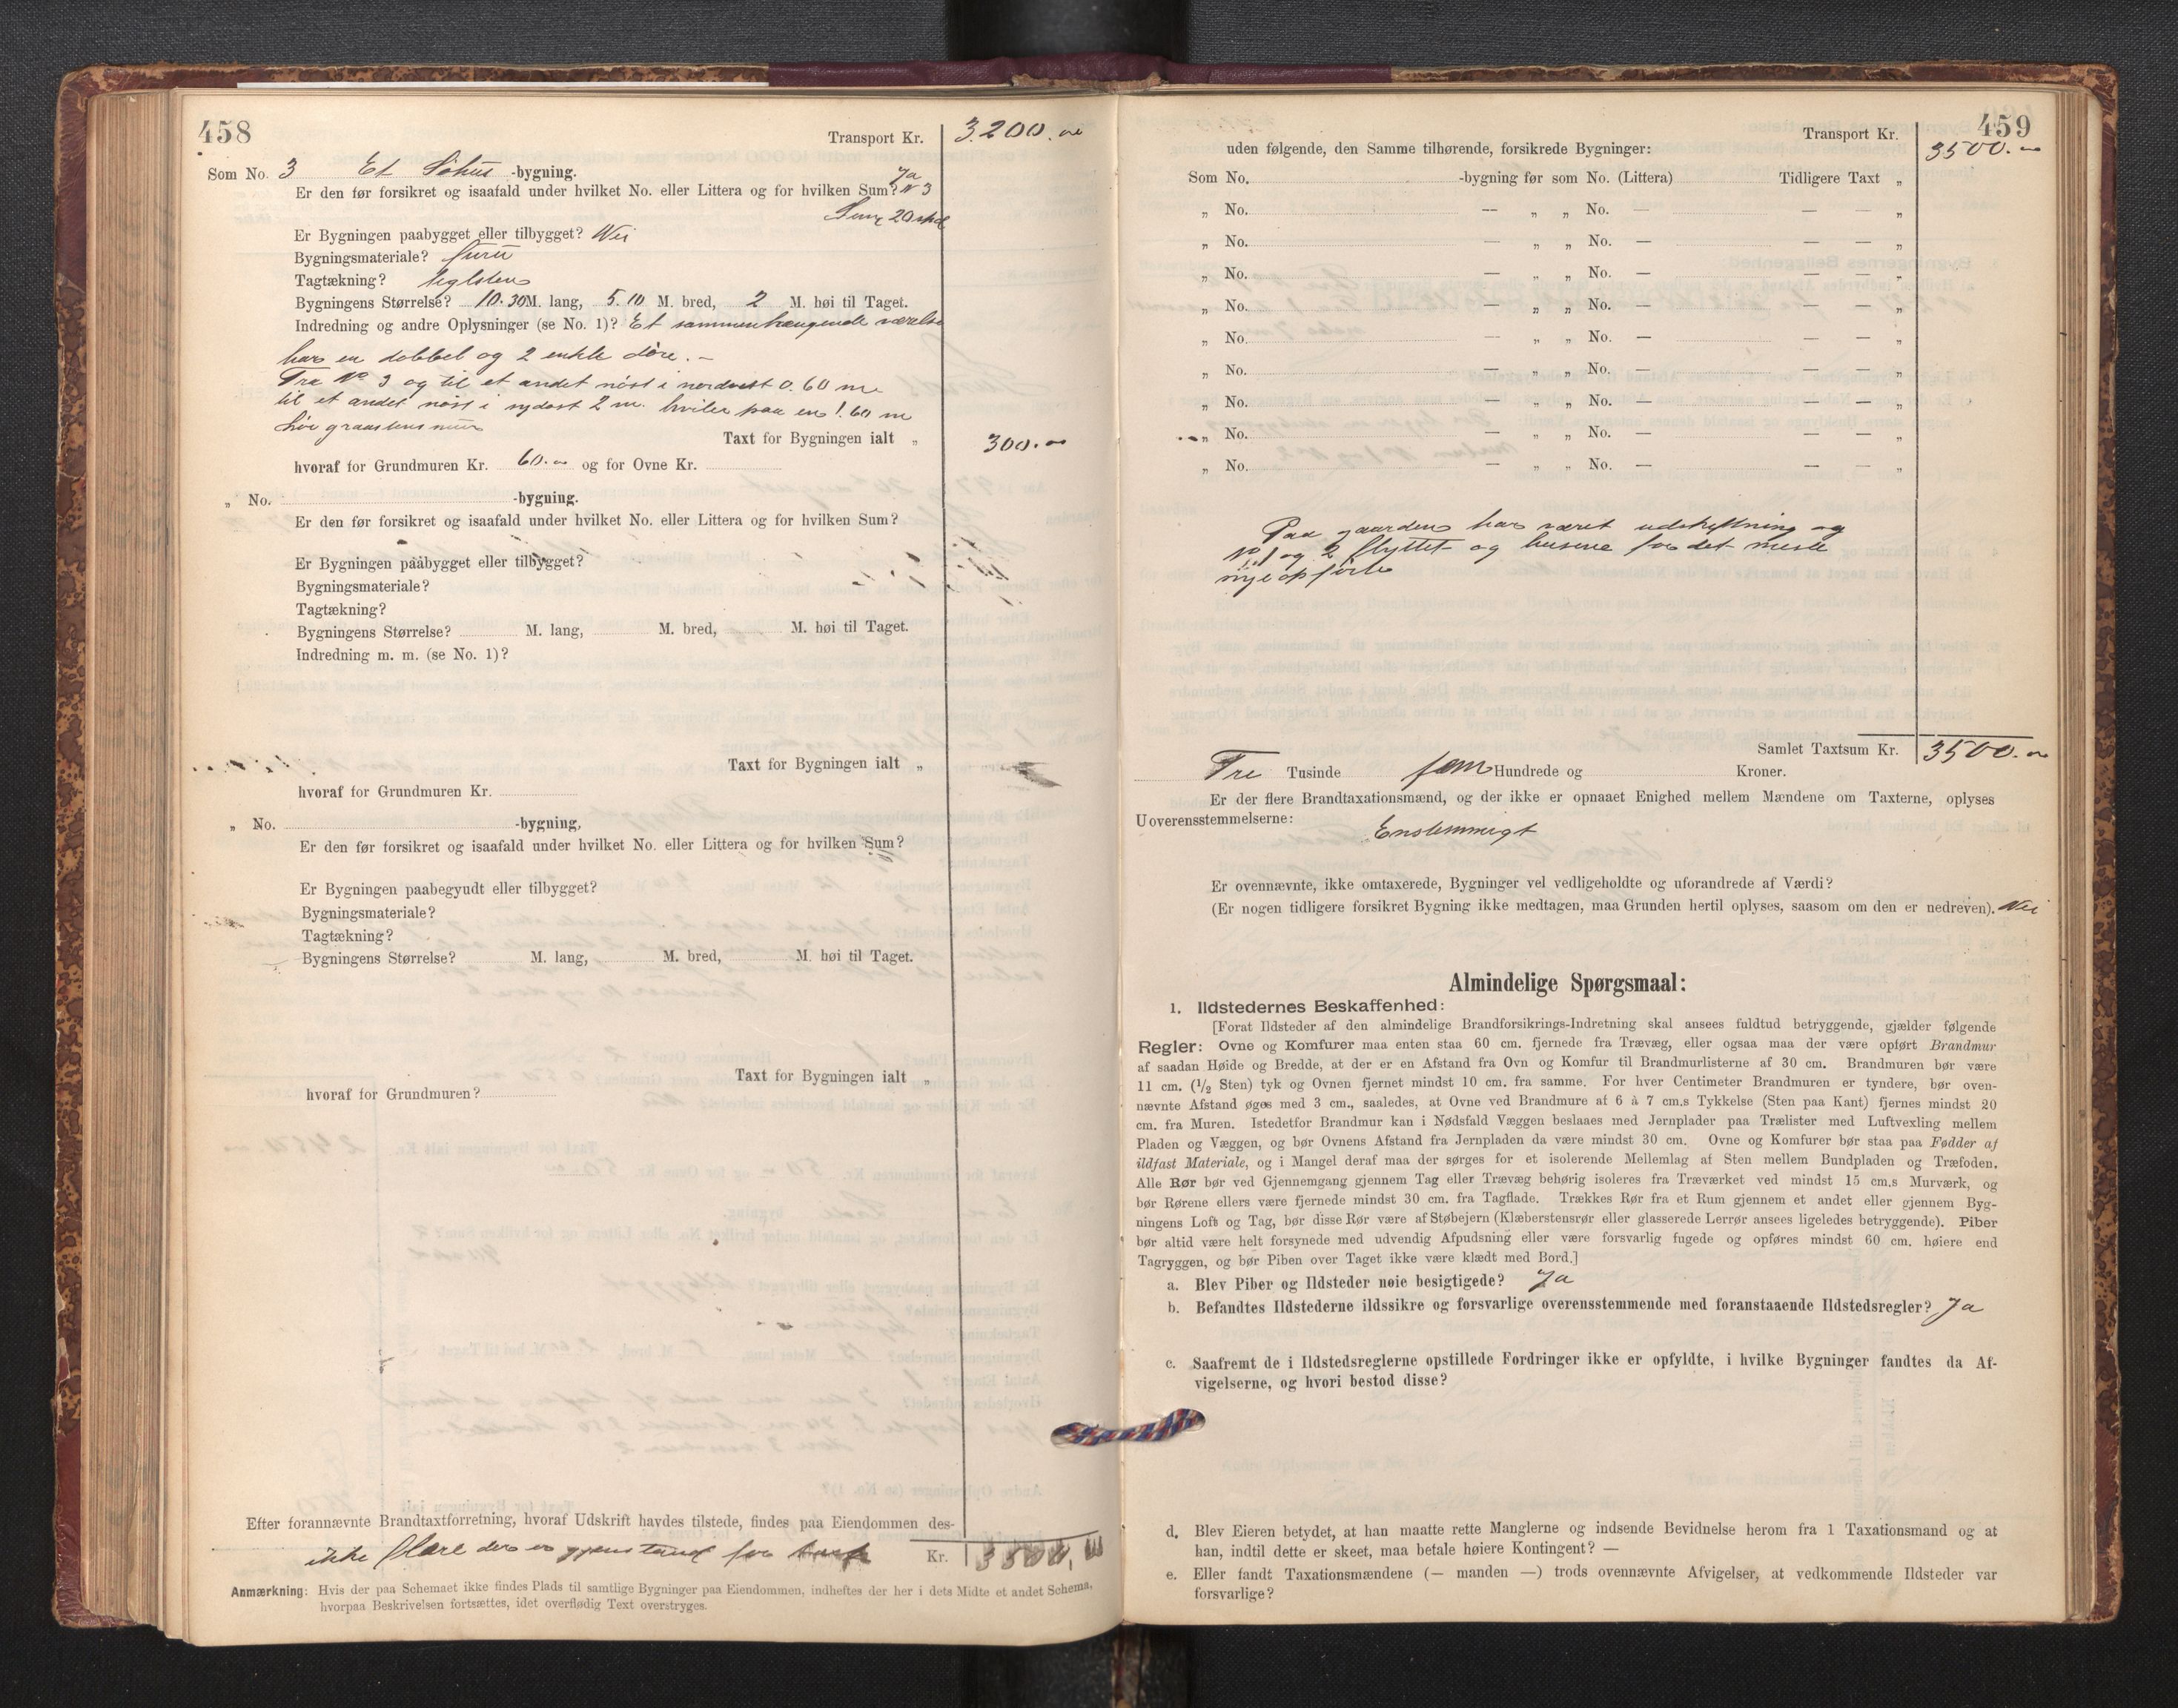 458
Transport Kr. 3200.00
Som No. 3 Et Söhus -bygning.
Er den før forsikret og isaafald under hvilket No. eller Littera og for hvilken Sum? Ja No 3
Sum 20 spd
Er Bygningen paabygget eller tilbygget? Nei
Bygningsmateriale? furu
Tagtækning? teglsten
Bygningens Størrelse? 10.30 M. lang, 5.10 M. bred, 2 M. høi til Taget.
Indredning og andre Oplysninger (se No. 1)? Et sammenhængende værelse
har en dobbel og 2 enkle döre. –
Fra No 3 og til et andet nöst i nordvest 0.60 m
til et andet nöst i sydost 2 m. hviler paa en 1.60 m
höi graastensmur
Taxt for Bygningen ialt „ 300.00
hvoraf for Grundmuren Kr. 60.00 og for Ovne Kr.
„ No. -bygning.
Er den før forsikret og isaafald under hvilket No. eller Littera og for hvilken Sum?
Er Bygningen paabygget eller tilbygget?
Bygningsmateriale?
Tagtækning?
Bygningens Størrelse? M. lang, M. bred, M. høi til Taget.
Indredning m. m. (se No. 1)?
Taxt for Bygningen ialt „
hvoraf for Grundmuren Kr.
„ No. -bygning,
Er den før forsikret og isaafald under hvilket No. eller Littera og for hvilken Sum?
Er Bygningen paabegyudt eller tilbygget?
Bygningsmateriale?
Tagtækning?
Bygningens Størrelse? M. lang, M. bred, M. høi til Taget.
Taxt for Bygningen ialt „
hvoraf for Grundmuren?
Efter forannævnte Brandtaxtforretning, hvoraf Udskrift havdes tilstede, findes paa Eiendommen des-
ikke flere der er gjenstand for Kr. 3500,00
Anmærkning: Hvis der paa Schemaet ikke findes Plads til samtlige Bygninger paa Eiendommen, indheftes der her i dets Midte et andet Schema,
hvorpaa Beskrivelsen fortsættes, idet overflødig Text overstryges.
459
Transport Kr. 3500.00
uden følgende, den Samme tilhørende, forsikrede Bygninger:
Som No. -bygning før som No. (Littera) Tidligere Taxt „
„ No. — „ „ No. — — — „
„ No. — „ „ No. — — — „
„ No. — „ „ No. — — — „
„ No. — „ „ No. — — — „
„ No. — „ „ No. — — — „
„ No. — „ „ No. — — — „
„ No. — „ „ No. — — — „
„ No. — „ „ No. — — — „
„ No. — „ „ No. — — — „
Paa gaarden har været udskiftning og
No 1 og 2 flyttet og husene for det meste
nye opförte
Samlet Taxtsum Kr. 3500.00
Tre Tusinde fem Hundrede og Kroner.
Er der flere Brandtaxationsmænd, og der ikke er opnaaet Enighed mellem Mændene om Taxterne, oplyses
Uoverensstemmelserne:
Enstemmigt
Er ovennævnte, ikke omtaxerede, Bygninger vel vedligeholdte og uforandrede af Værdi?
(Er nogen tidligere forsikret Bygning ikke medtagen, maa Grunden hertil oplyses, saasom om den er nedreven). Nei
Almindelige Spørgsmaal:
1. Ildstedernes Beskaffenhed:
[Forat Ildsteder af den almindelige Brandforsikrings-Indretning skal ansees fuldtud betryggende, gjælder følgende
Regler: Ovne og Komfurer maa enten staa 60 cm. fjernede fra Trævæg, eller ogsaa maa der være opført Brandmur
af saadan Høide og Bredde, at der er en Afstand fra Ovn og Komfur til Brandmurlisterne af 30 cm. Brandmuren bør være
11 cm. (1/2 Sten) tyk og Ovnen fjernet mindst 10 cm. fra samme. For hver Centimeter Brandmuren er tyndere, bør oven-
nævnte Afstand øges med 3 cm., saaledes, at Ovne ved Brandmure af 6 à 7 cm.s Tykkelse (Sten paa Kant) fjernes mindst 20
cm. fra Muren. Istedetfor Brandmur kan i Nødsfald Væggen beslaaes med Jernplader paa Trælister med Luftvexling mellem
Pladen og Væggen, og bør Ovnens Afstand fra Jernpladen da være mindst 30 cm. Ovne og Komfurer bør staa paa Fødder af
ildfast Materiale, og i Mangel deraf maa der sørges for et isolerende Mellemlag af Sten mellem Bundpladen og Træfoden.
Alle Rør bør ved Gjennemgang gjennem Tag eller Trævæg behørig isoleres fra Træværket ved mindst 15 cm.s Murværk, og
bør Rørene ellers være fjernede mindst 30 cm. fra Tagflade. Trækkes Rør fra et Rum gjennem et andet eller gjennem Byg-
ningens Loft og Tag, bør disse Rør være af Støbejern (Klæberstensrør eller glasserede Lerrør ansees ligeledes betryggende). Piber
bør altid være helt forsynede med udvendig Afpudsning eller være forsvarlig fugede og opføres mindst 60 cm. høiere end
Tagryggen, og bør Piben over Taget ikke være klædt med Bord.]
a. Blev Piber og Ildsteder nøie besigtigede? Ja
b. Befandtes Ildstederne ildssikre og forsvarlige overensstemmende med foranstaaende Ildstedsregler? Ja
c. Saafremt de i Ildstedsreglerne opstillede Fordringer ikke er opfyldte, i hvilke Bygninger fandtes da Af-
vigelserne, og hvori bestod disse?
d. Blev Eieren betydet, at han maatte rette Manglerne og indsende Bevidnelse herom fra 1 Taxationsmand og at
han, indtil dette er skeet, maa betale høiere Kontingent? —
e. Eller fandt Taxationsmændene (— manden —) trods ovennævnte Afvigelser, at vedkommende Ildsteder var
forsvarlige?